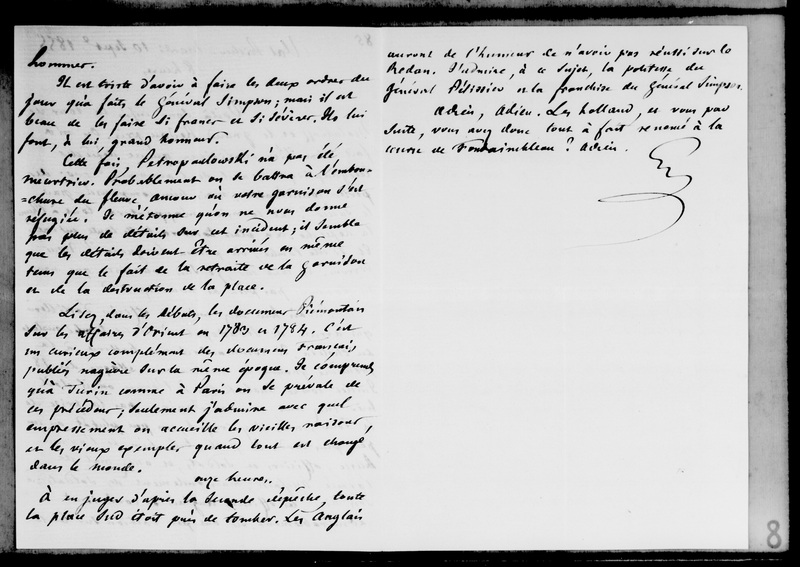 hommes.
Il est triste d'avoir à faire les deux ordres du
jour qu'a faits le Général Simpson ; mais il est
beau de les faire si francs et si sévères. Ils lui
font, à lui, grand honneur.
Cette fois, Petropaulowski n'a pas été
meurtrier. Probablement on se battra à l'embou-
=chure du fleuve amour où votre garnison s'est
réfugiée. Je m'étonne qu'on ne nous donne
pas plus de détails sur cet incident ; il semble
que les détails doivent être arrivés en même
tems que le fait de la retraite de la garnison
et de la destruction de la place.
Lisez, dans les Débats, les documens Piémontais
sur les affaires d'Orient en 1783 et 1784. C'est
un curieux complément des documens français
publiés naguère sur la même époque. Je comprends
qu'à Turin comme à Paris on se prévale de
ces précédens ; seulement j'admire avec quel
empressement on accueille les vieilles raisons,
et les vieux exemples quand tout est changé
dans le monde.
onze heures.
À en juger d'après la seconde dépêche, toute
la place Sud étoit près de tomber. Les Anglais
auront de l'humeur de n'avoir pas réussi sur le
Redan. J'admire, à ce sujet, la politesse du
Général Pélissier et la franchise du Général Simpson.
Adieu, Adieu. Les holland, et vous par
suite, vous avez donc tout à fait renoncé à la
course de Fontainebleau ? Adieu.
8